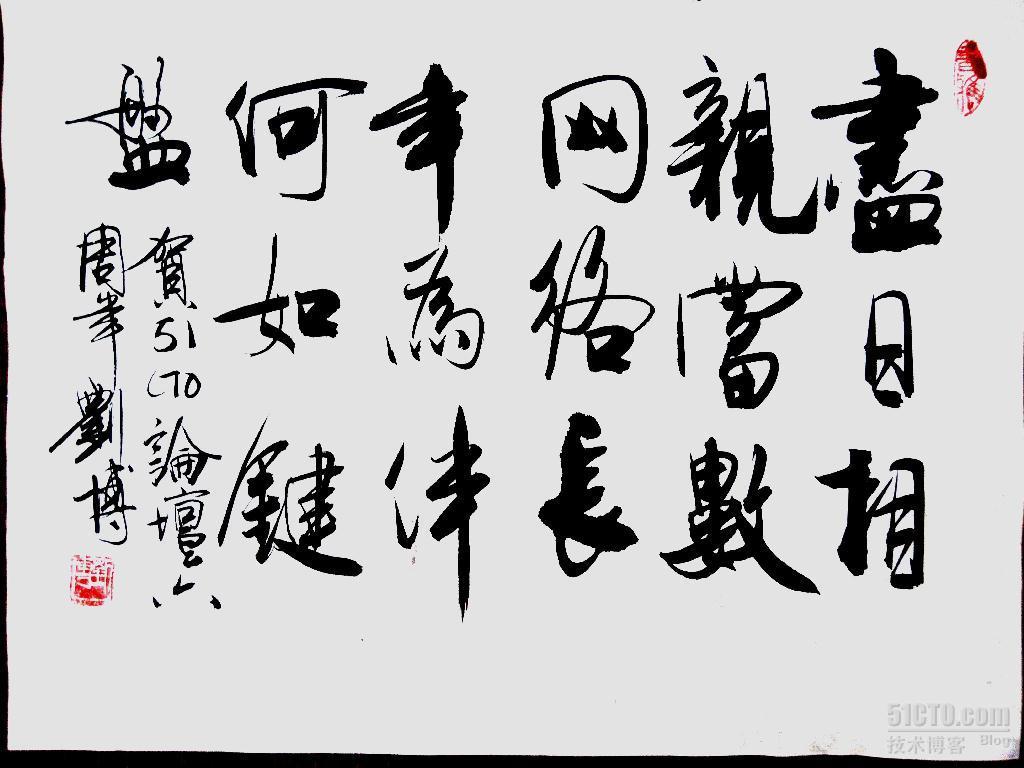 盡日相
親當數
网络長
年為伴
何如鍵
盤
賀51CTO論壇六
周年劉博
51CTO.com
技术博客 Blog